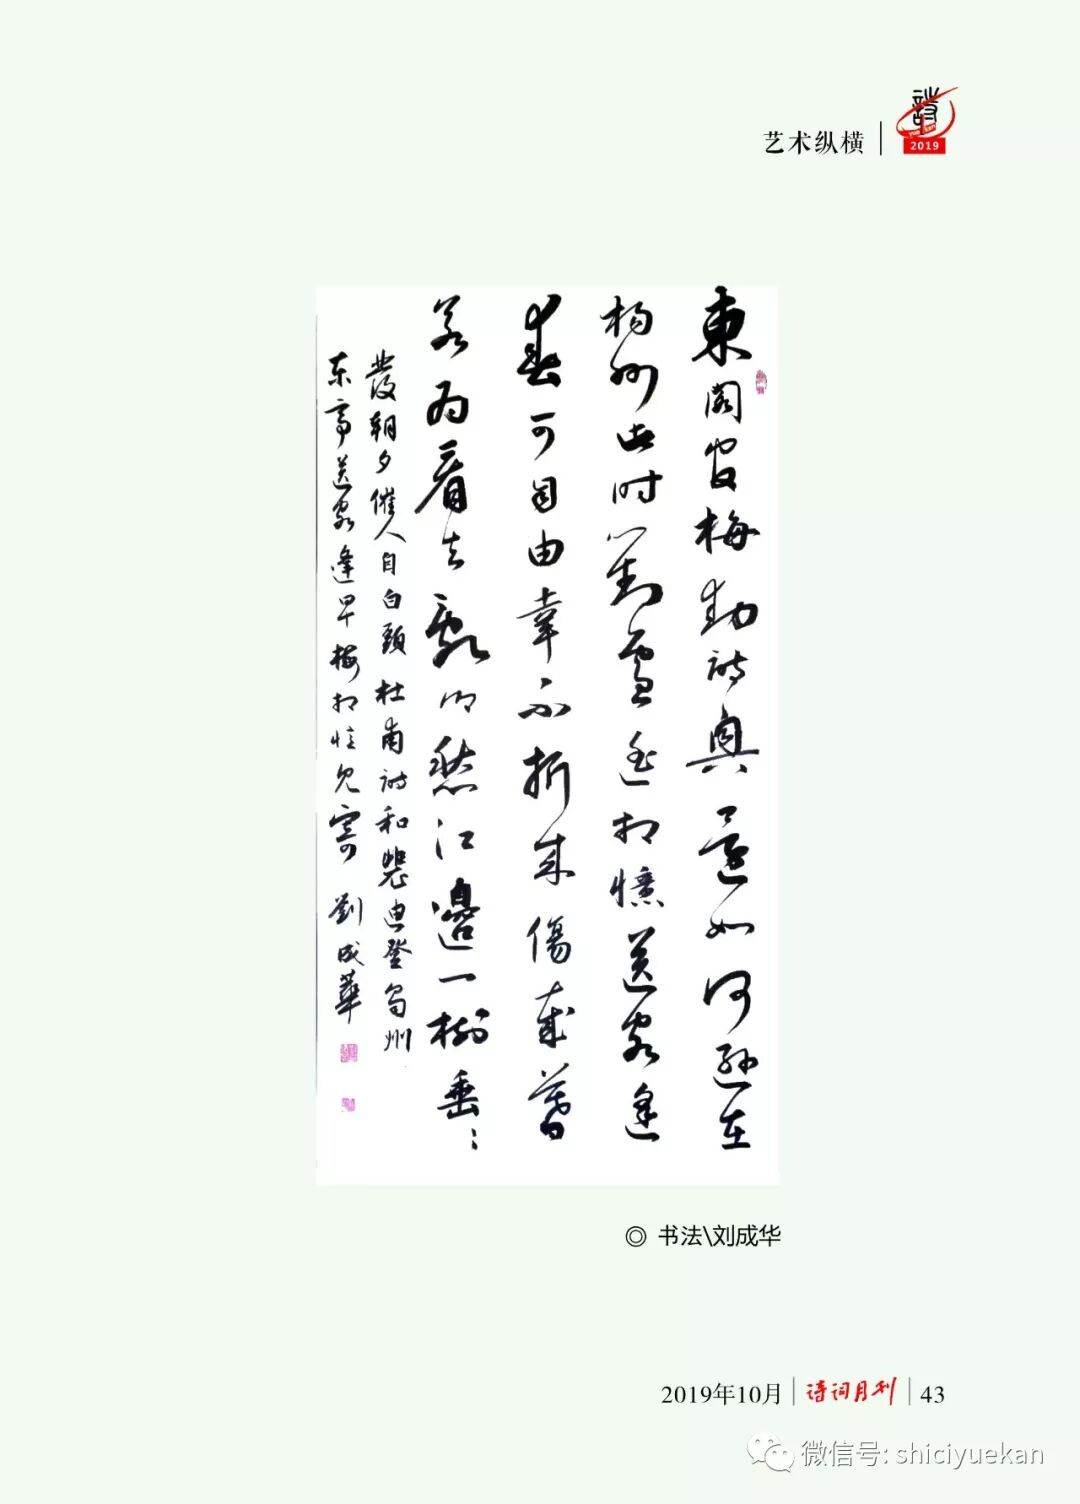 艺术纵横
詩
2019
東閣官梅動詩興還如何遜在
楊州此时對雪遥相憶送客逢
春可自由幸不折来傷歲暮
若为看去亂鄉愁江邊一樹垂〻
發朝夕催人自白頭 杜甫詩和裴迪登蜀州
东亭送客逢早梅相憶見寄 劉成華
◎ 书法\刘成华
2019年10月 诗词月刊 43
微信号: shiciyuekan